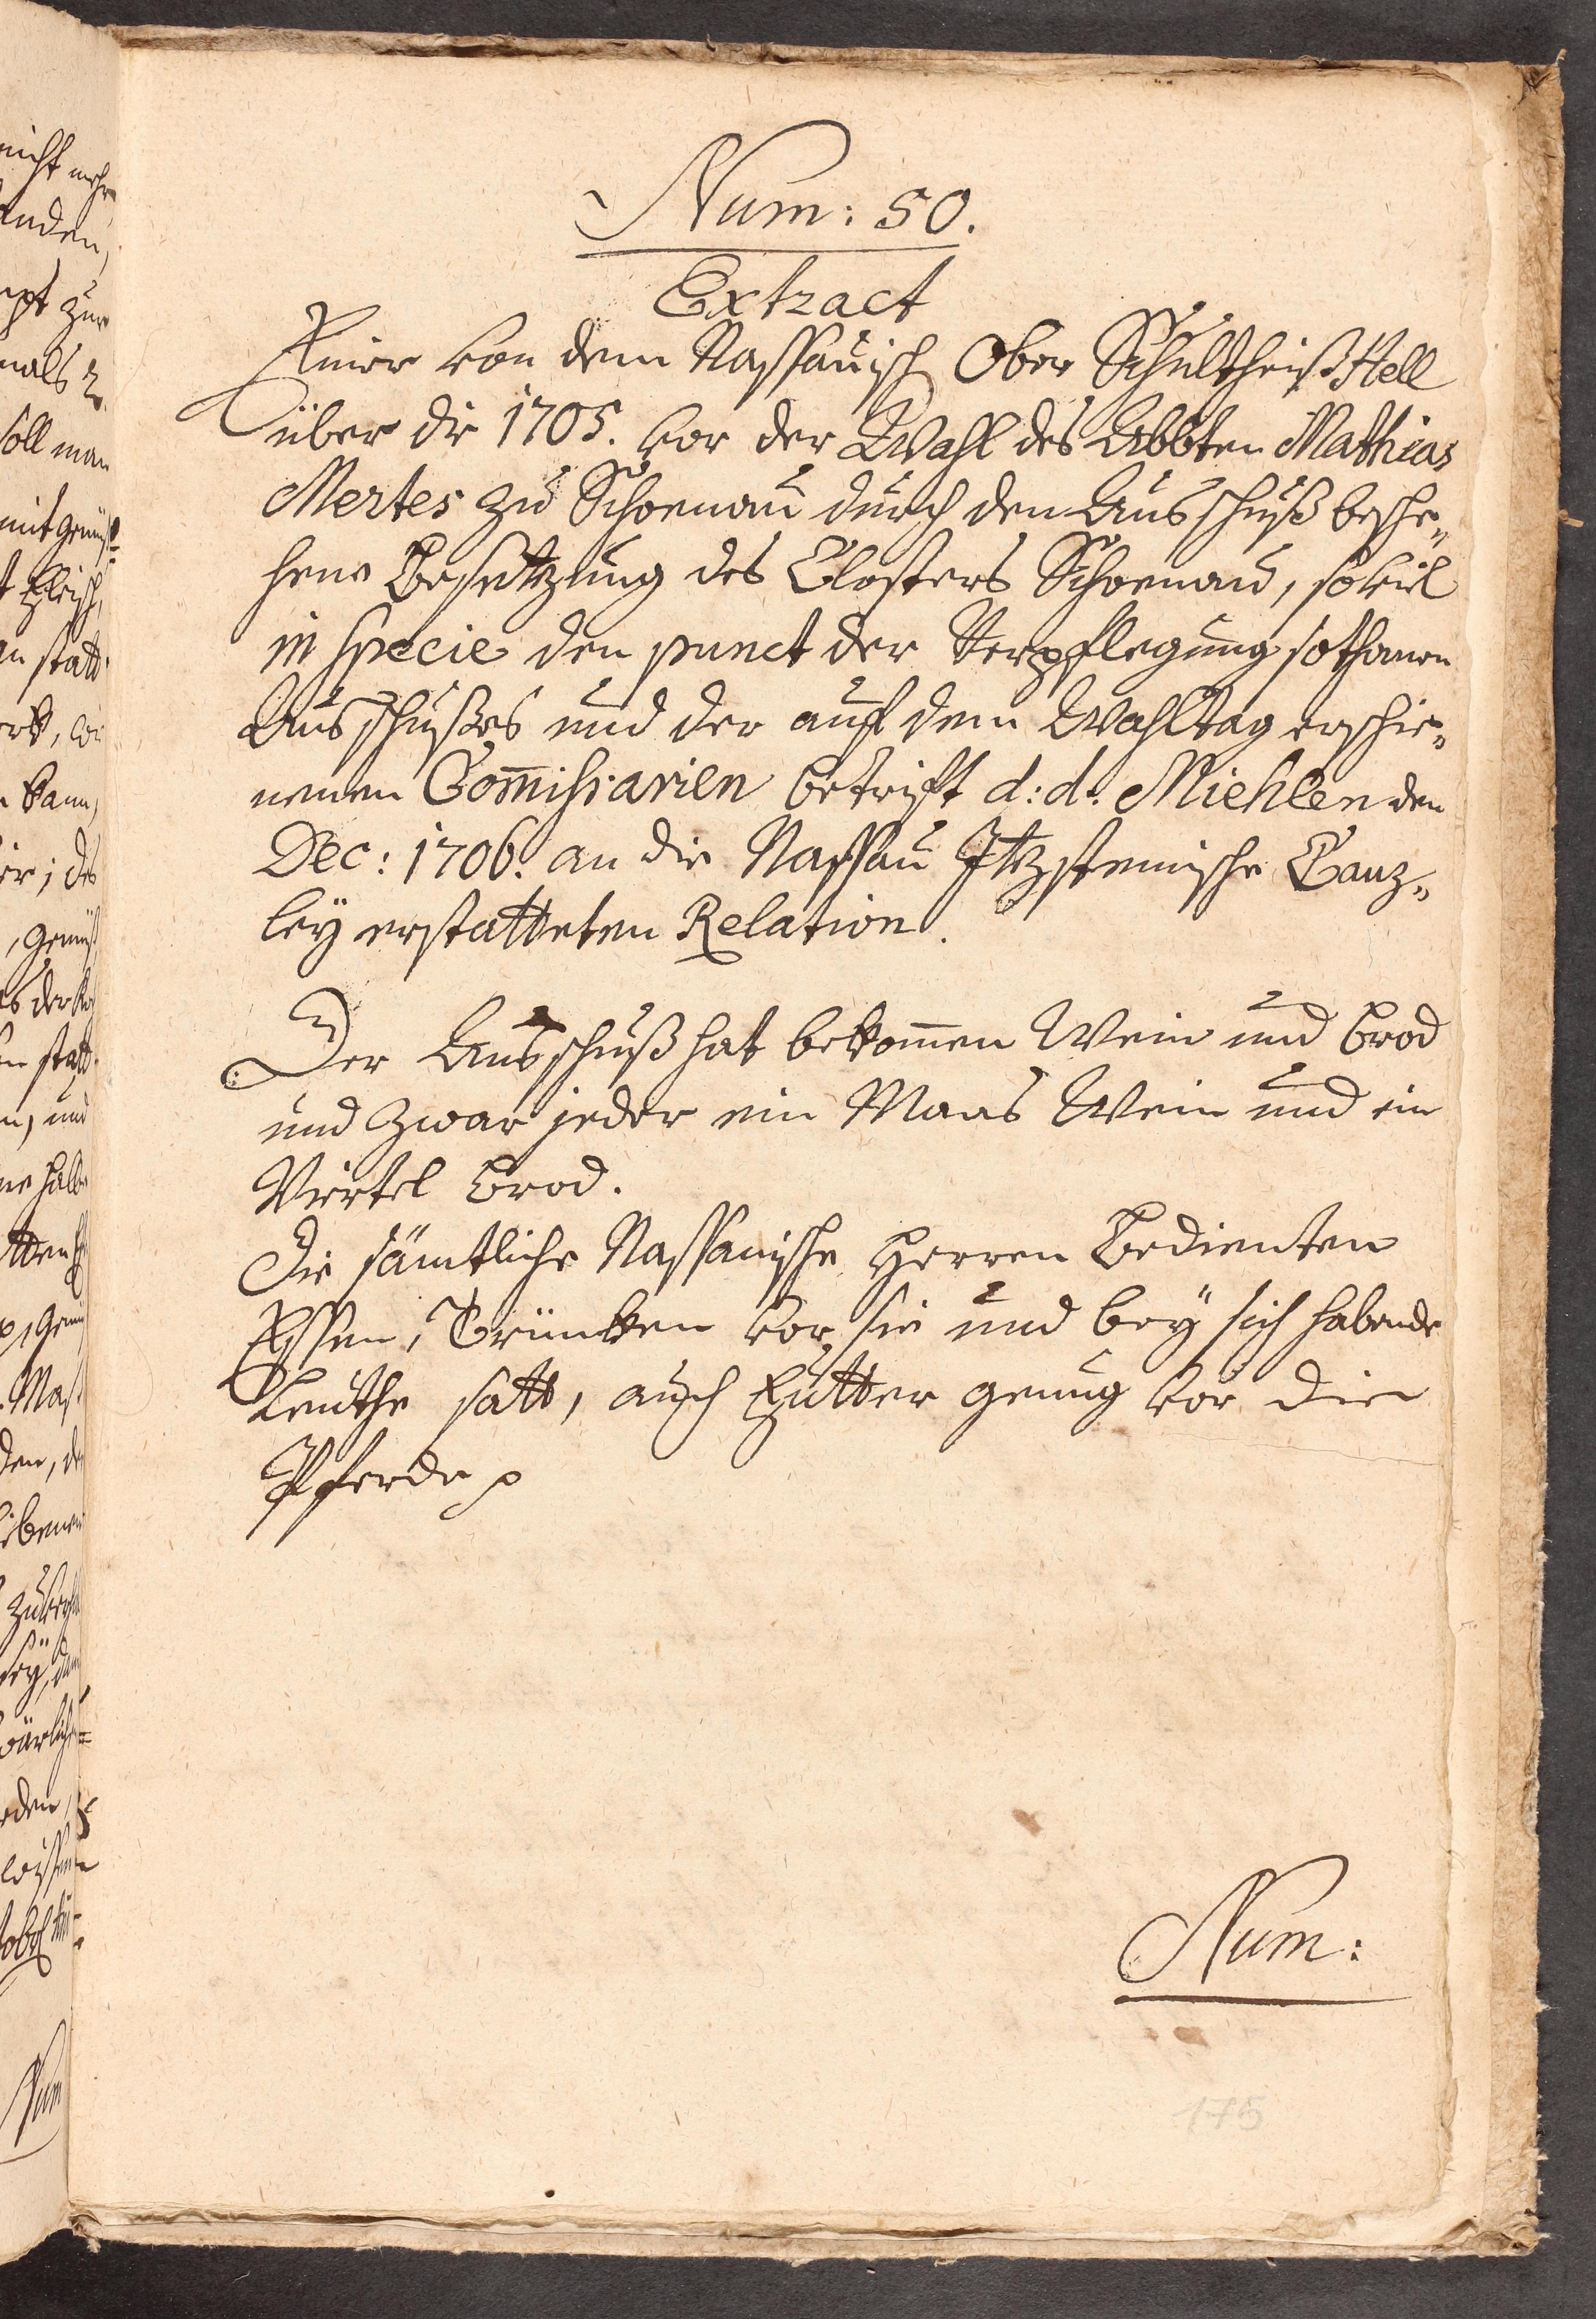 Num: 50.
Extract
Einer von dem Nassauisch Ober Schultheiß Hell
über die 1705. vor der Wahl des Abbten Mathias
Mertes zu Schoenau durch den Ausschuß besche„
hene Besetzung des Closters Schoenau, so viel
in specie den punct der Verpflegung sothanen
Ausschußes und der auf dem Wahltag erschie„
nenen Com̅issarien betrifft d: d: Miehlen den
Dec: 1706. an die Nassau Itzsteinische Canz„
leÿ erstatteten Relation.
Der Ausschuß hat bekom̅en Wein und Brod
und zwar jeder ein Maas Wein und ein
Viertel Brod.
Die sämtliche Nassauische Herren Bedienten
Essen, Trüncken vor sie und beÿ sich habende
Leuthe satt, auch Futter genug vor die
Pferde p
Num:
175